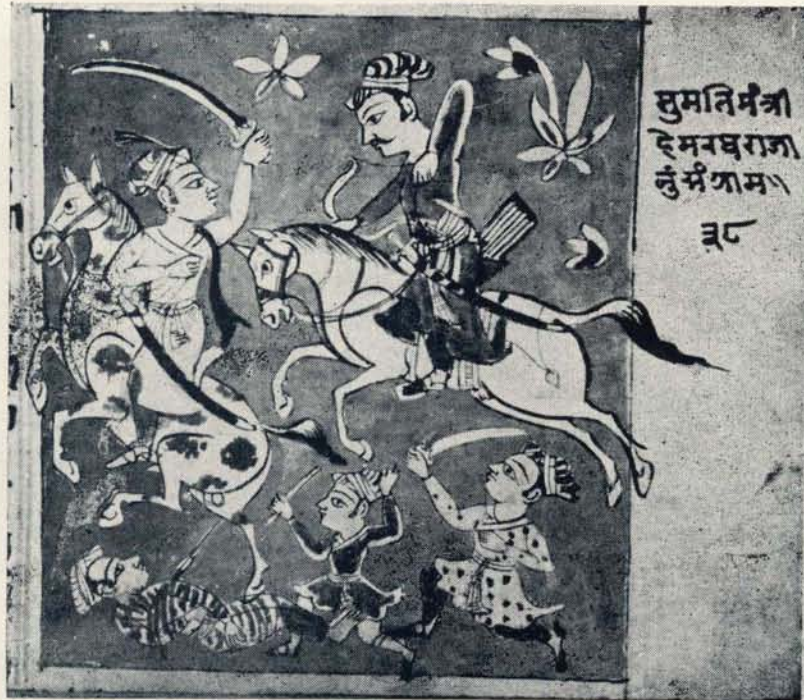 सुमतिमंत्री
हेमरथराजा
नुं संग्राम॥
३८